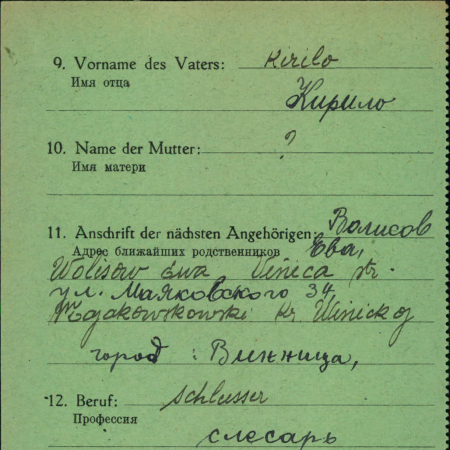 9. Vorname des Vaters: Kirilo
Имя отца
Кирило
10. Name der Mutter: ?
Имя матери
11. Anschrift der nächsten Angehörigen: Волисов
Адрес ближайших родственников Ева,
Wolisow Ewa Vineca str.
ул. Маяковского 34,
Kr Winickoj
город Винница,
12. Beruf: Schlusser
Профессия
слесарь